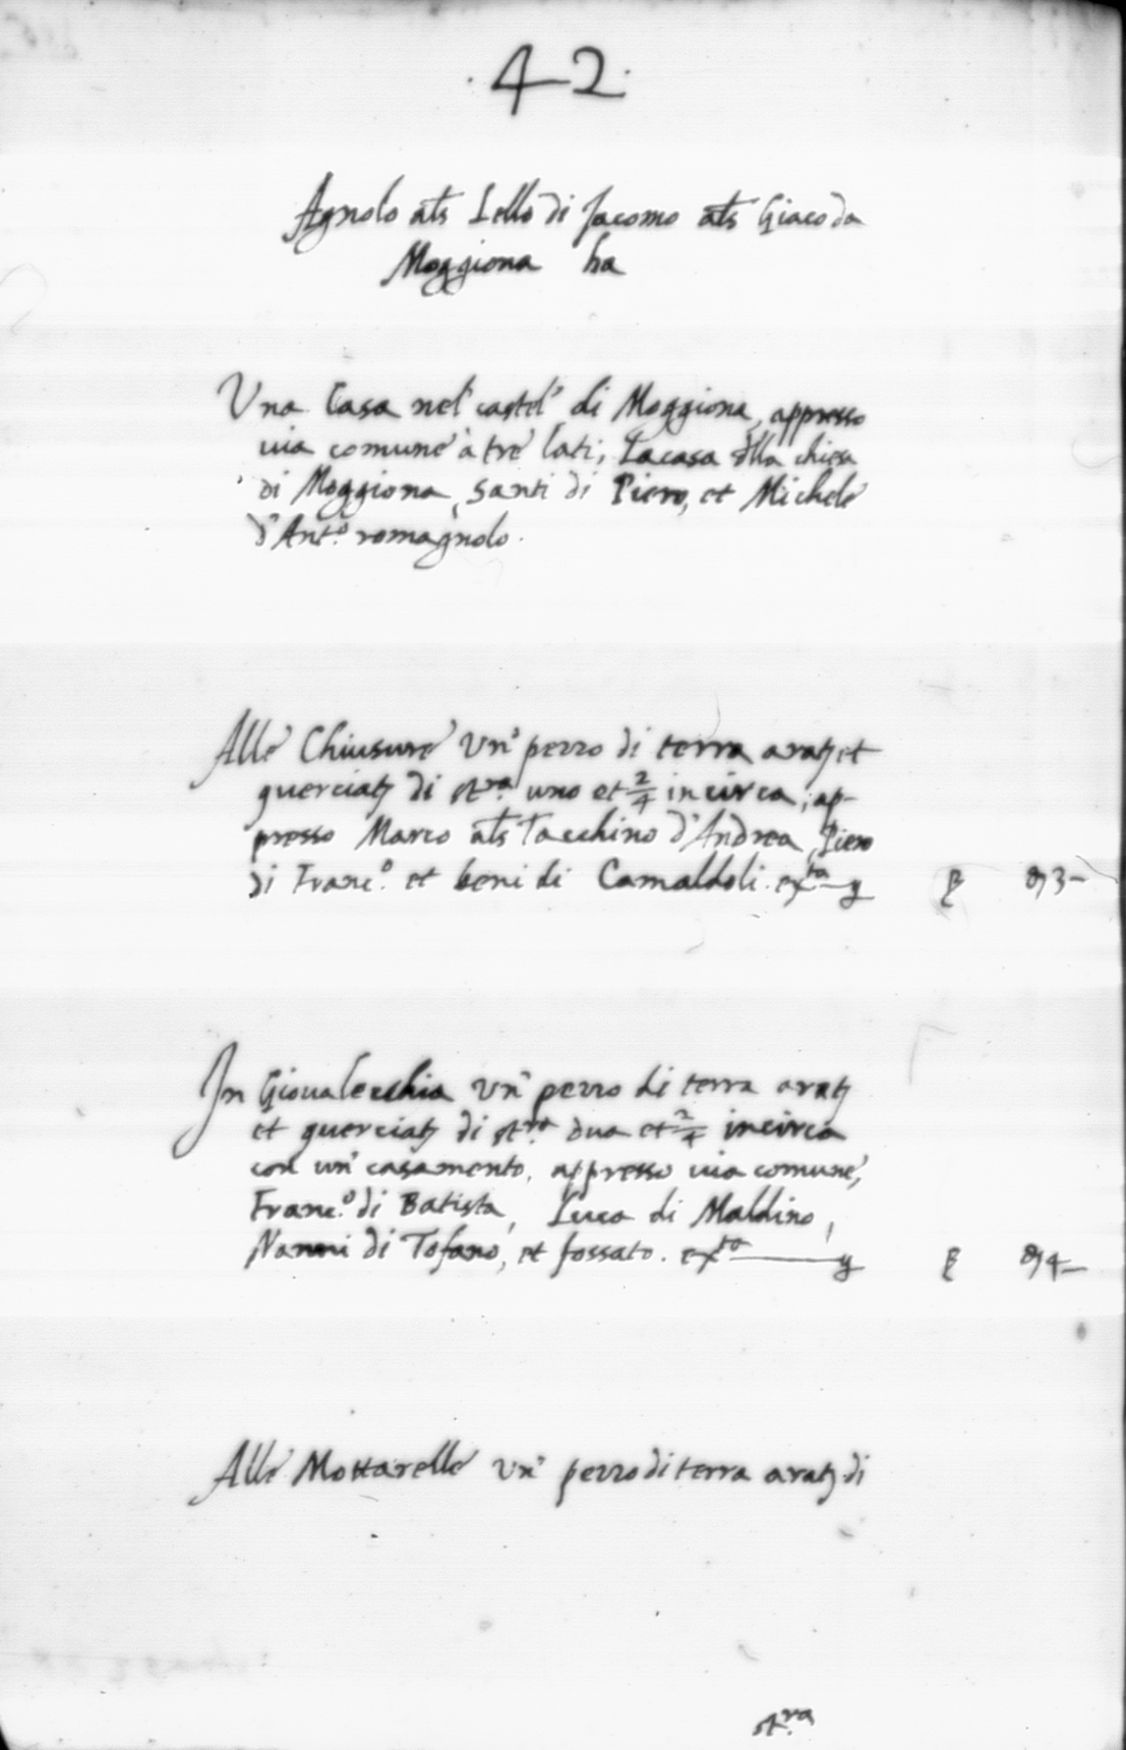 ·42·
Agnolo als Lello di Jacomo als Giaco da
Moggiona ha
Una Casa nel castel' di Moggiona, appresso
via comune à tre lati, La casa dlla chiesa
di Moggiona, Santi di Piero, et Michele
d'Ant.o romagnolo.
Alle Chiusure un pezzo di terra arat. et
querciat. di st.ra uno et 2/4 in circa, ap-
presso Marco als Tacchino d'Andrea, Piero
di Franc.o et beni di Camaldoli. ex.ta
In Giovalecchia un pezzo di terra arat.
et querciat. di st.ra dua et 2/4 in circa
con un casamento, appresso via comune,
Franc.o di Batista, Luca di Maldino,
Nanni di Tofano, et fossato. ex.ta
Alle Mottarelle un pezzo di terra arat. di
st.ra